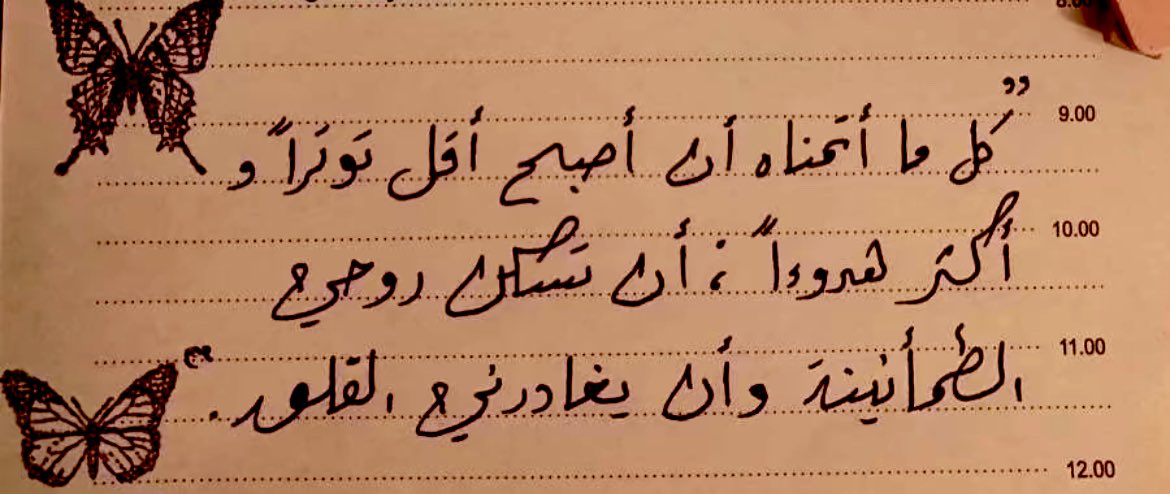 8.00
9.00
"كل ما أتمناه أن أصبح أقل توتراً و
10.00
أكثر هدوءاً ؛ أن تسكن روحي
11.00
الطمأنينة وأن يغادرني القلق ."
12.00